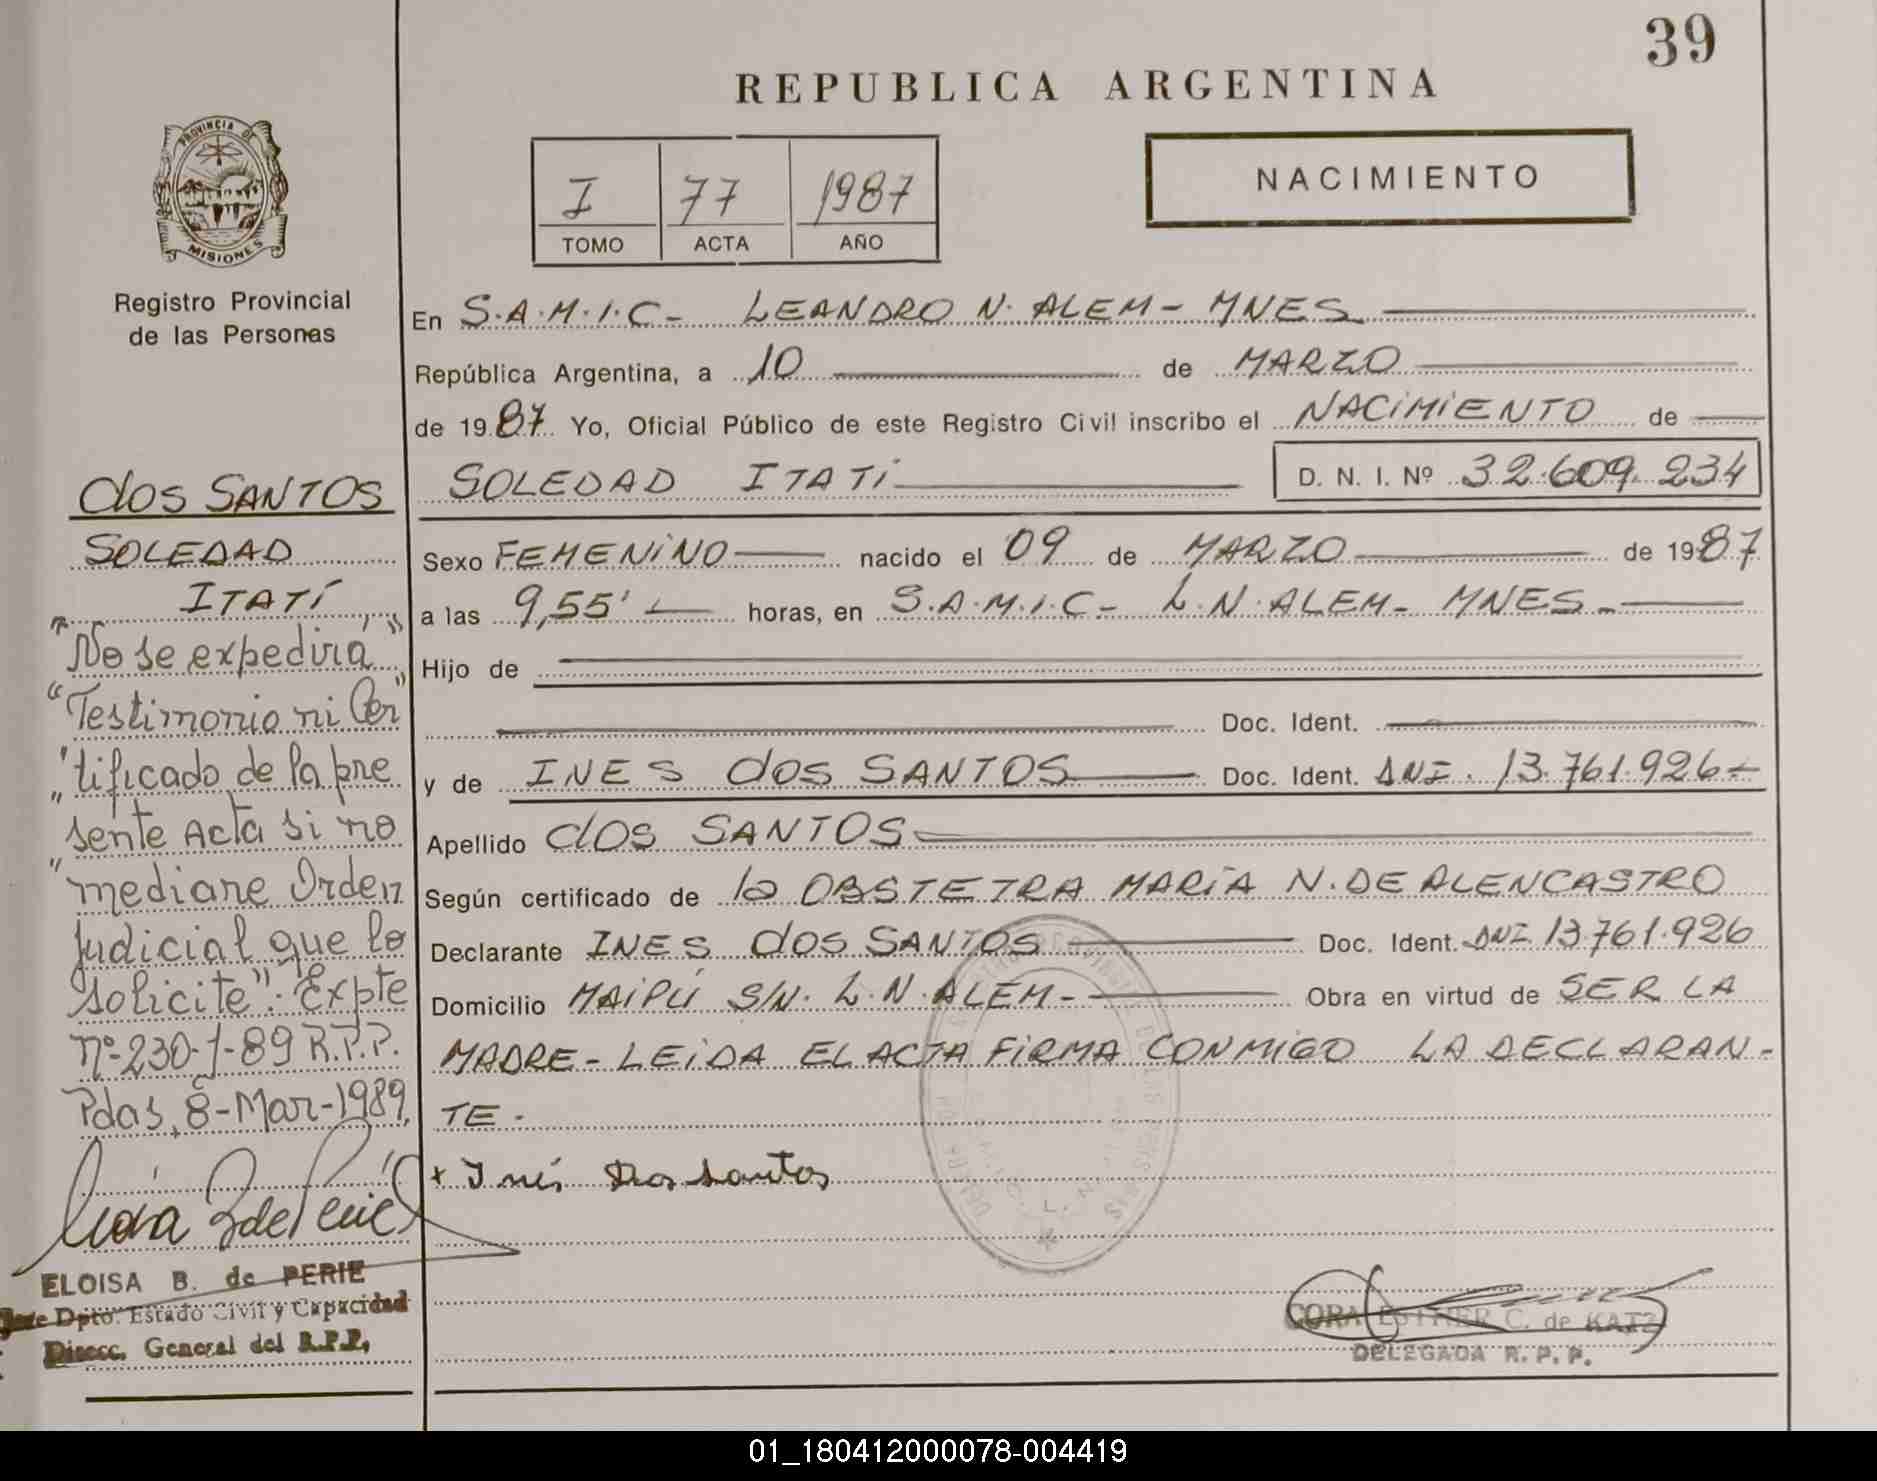 39
REPUBLICA ARGENTINA
I 77 1987
TOMO ACTA AÑO
NACIMIENTO
PROVINCIA DE
MISIONES
Registro Provincial
de las Personas
En S.A.M.I.C- LEANDRO N. ALEM - MNES
República Argentina, a 10 de MARZO
de 1987 Yo, Oficial Público de este Registro Civil inscribo el NACIMIENTO de
SOLEDAD ITATI D. N. I. Nº 32.609.234
Sexo FEMENINO nacido el 09 de MARZO de 1987
a las 9,55' horas, en S.A.M.I.C- L.N.ALEM- MNES-
Hijo de
Doc. Ident.
y de INES dos SANTOS Doc. Ident. DNI. 13.761.926-
Apellido dos SANTOS
Según certificado de la OBSTETRA MARIA N. DE ALENCASTRO
Declarante INES dos SANTOS Doc. Ident. DNI 13.761.926
Domicilio MAIPÚ S/N. L.N.ALEM- Obra en virtud de SER LA
MADRE- LEIDA EL ACTA FIRMA CONMIGO LA DECLARAN-
TE.
+ Inés Dos Santos
CORA ESTHER C. de KATZ
DELEGADA R. P. P.
dos SANTOS
SOLEDAD
ITATÍ
"No se expedirá"
"Testimonio ni Cer"
"tificado de la pre
sente Acta si no
"mediare Orden
Judicial que lo
solicite". Expte
Nº-230-J-89 R.P.P.
Pdas, 8-Mar-1989,
ELOISA B. de PERIE
Jefe Dpto. Estado Civil y Capacidad
Direcc. General del R.P.P.
01_180412000078-004419